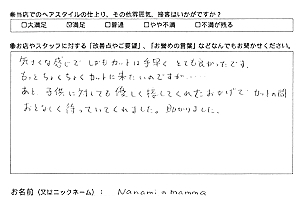 ●当店でのヘアスタイルの仕上り、その他雰囲気、接客はいかがですか？
□大満足 ☑満足 □普通 □やや不満 □不満が残る
●お店やスタッフに対する「改善点やご要望」、「お誉めの言葉」などなんでもお聞かせください。
気さくな感じで しかもカットは手早く とても良かったです。
もっとちょくちょくカットに来たいのですが……
あと、子供に対しても優しく接してくれたおかげで カットの間
おとなしく待っていてくれました。助かりました。
お名前（又はニックネーム）： Nanami a mamma